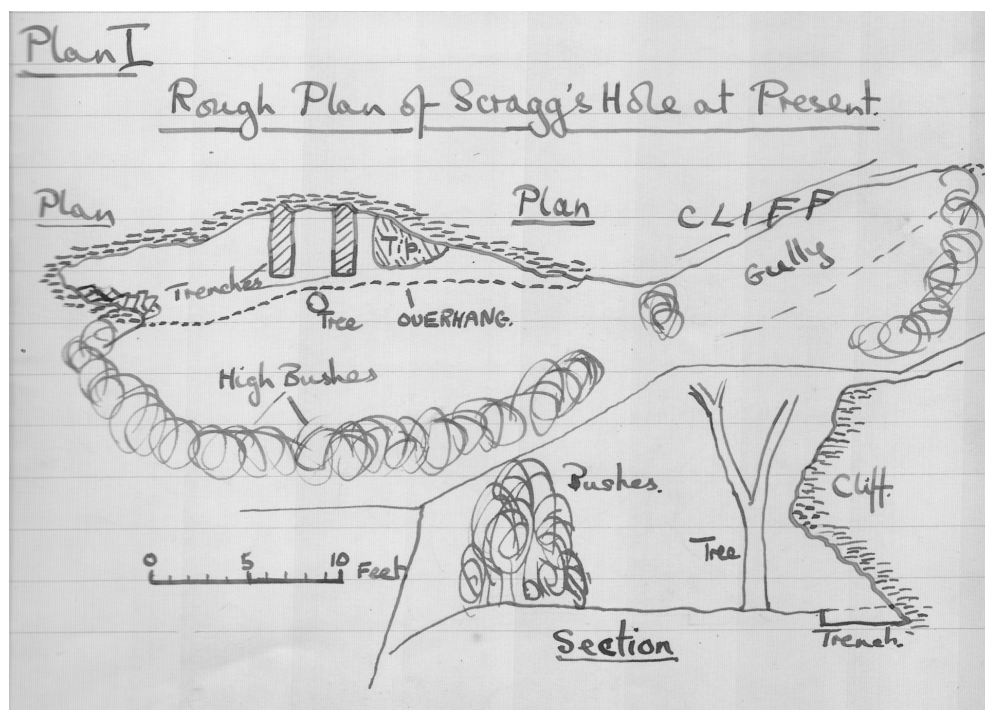 Plan I
Rough Plan of Scragg's Hole at Present.
Plan
Plan
CLIFF
Gully
Tip.
Trenches
Tree
OVERHANG.
High Bushes
Bushes.
Cliff.
Tree
0 5 10 Feet
Section
Trench.